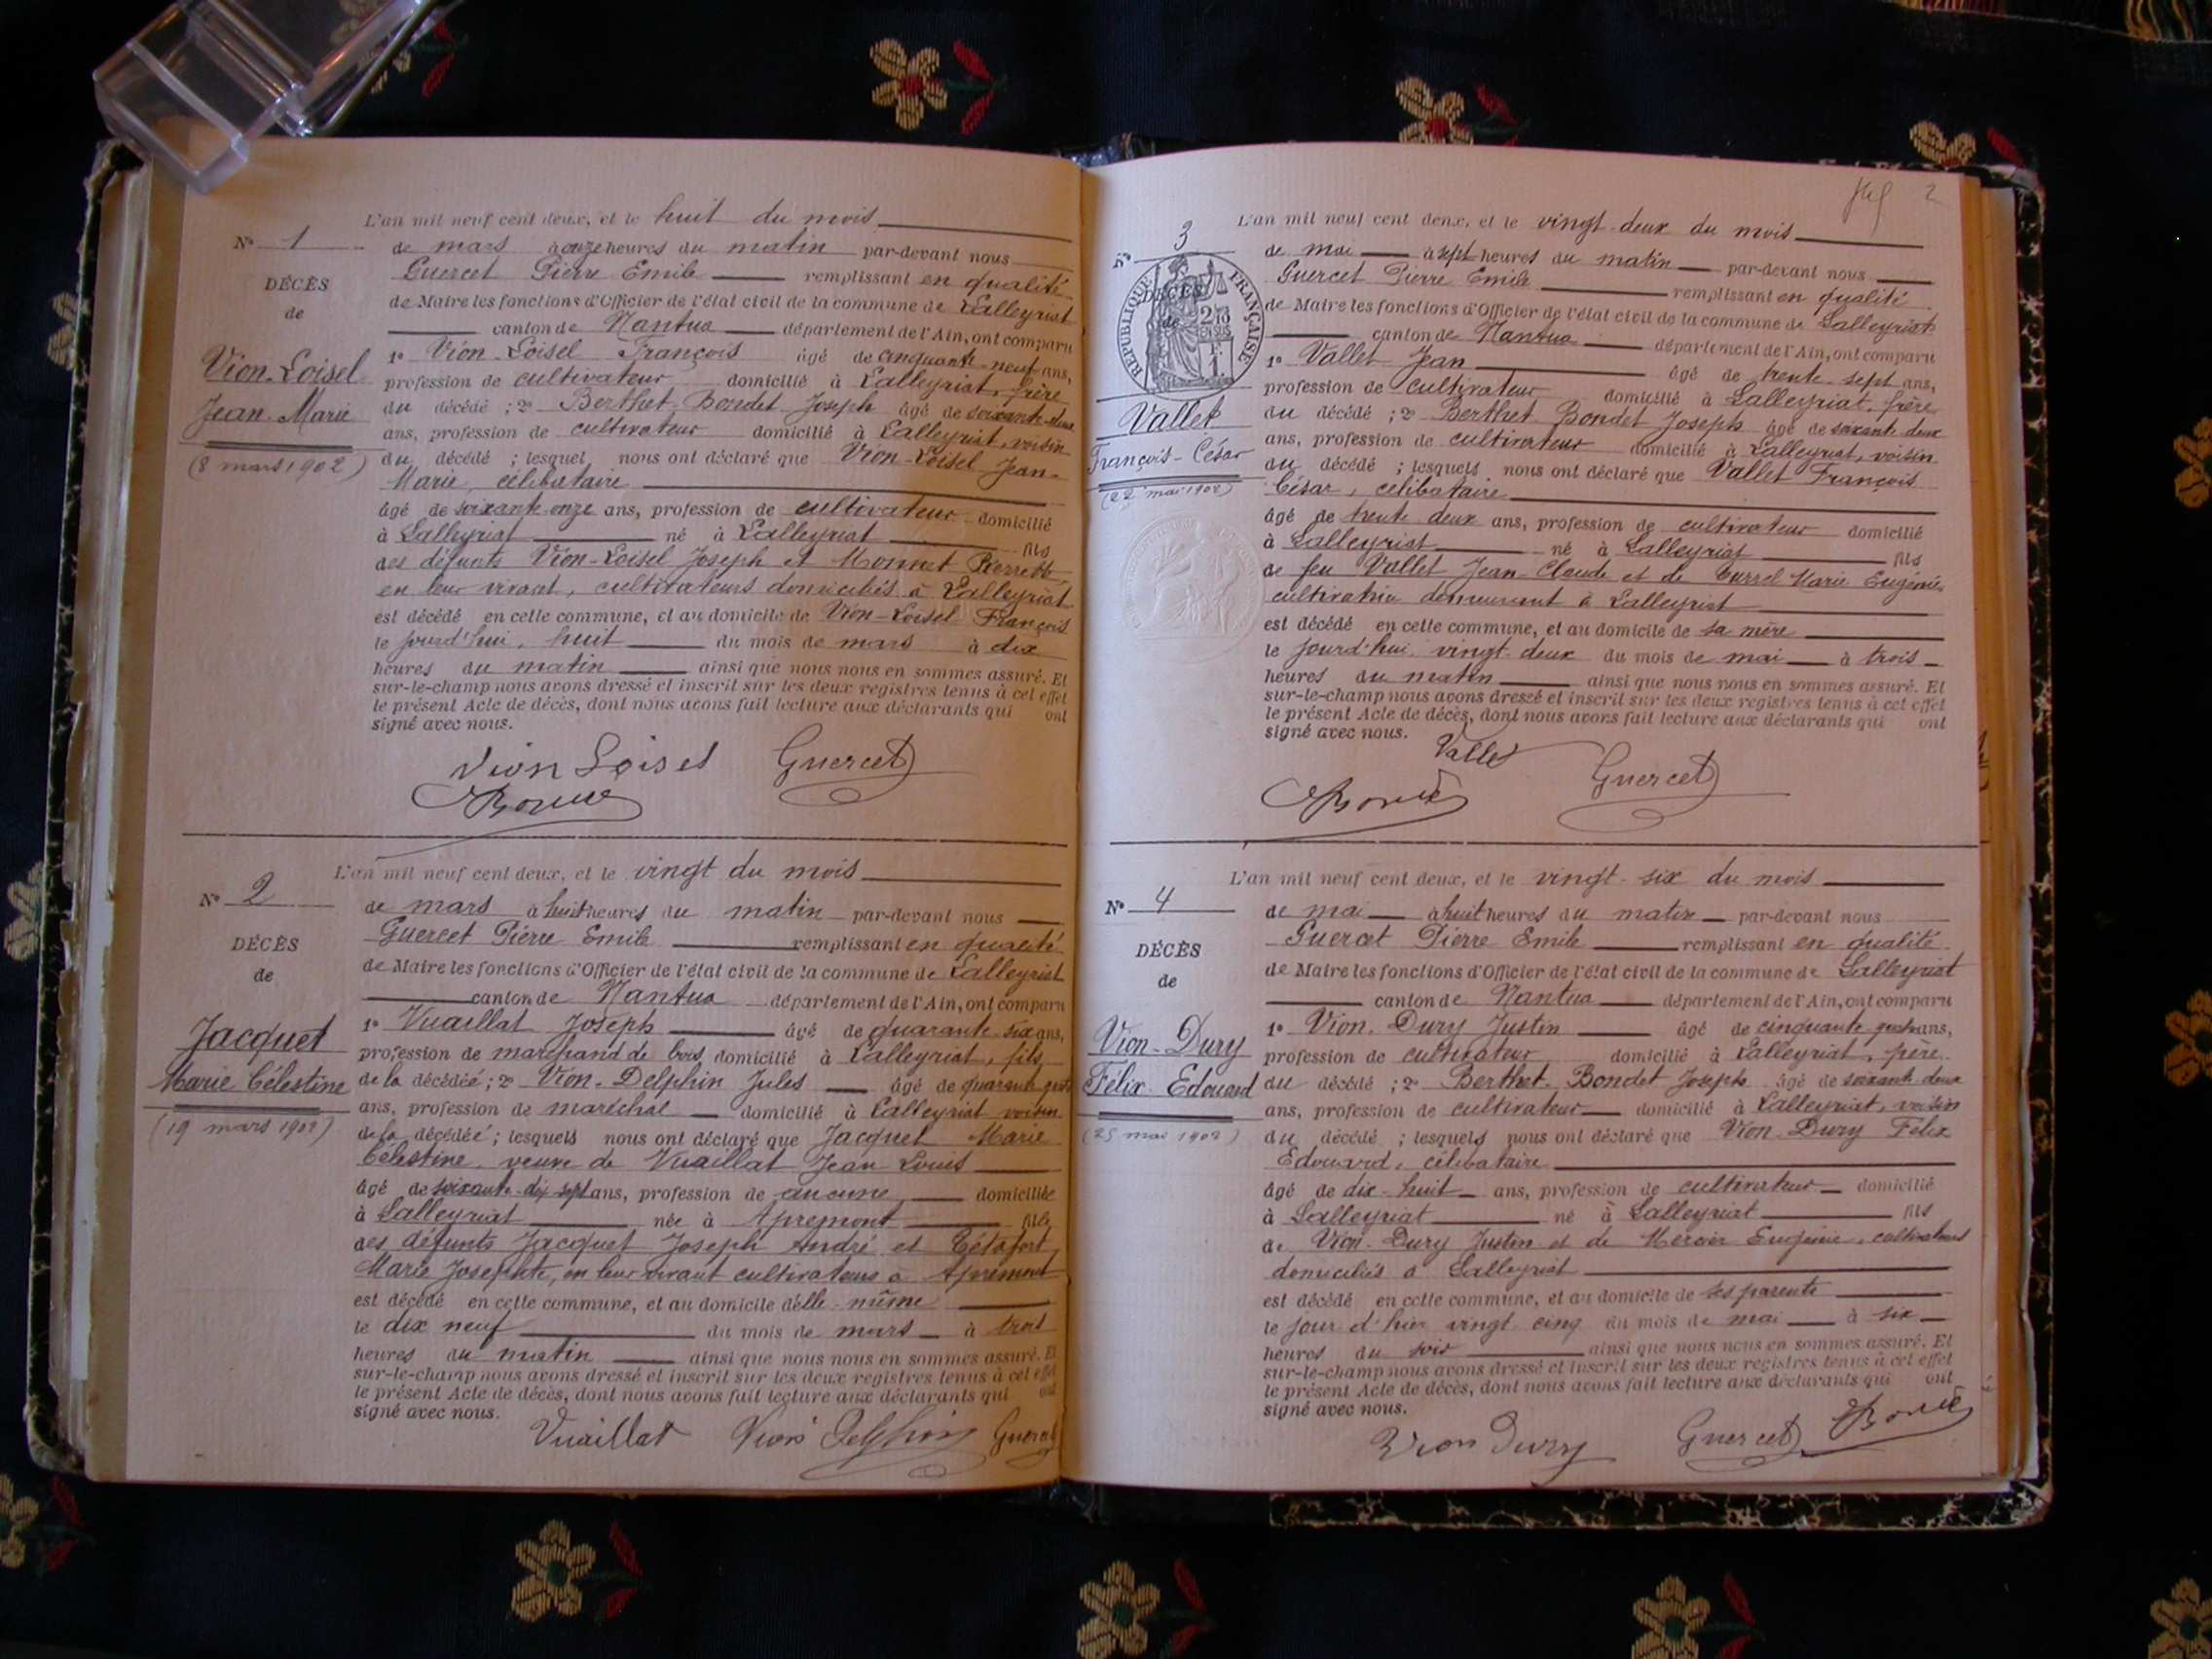 L'an mil neuf cent deux, et le huit du mois
N° 1
de mars à onze heures du matin par-devant nous
Guercet Pierre Emile remplissant en qualité
DÉCÈS
de Maire les fonctions d'Officier de l'état civil de la commune de Lalleyriat
de
canton de Nantua département de l'Ain, ont comparu
Vion-Loisel
1° Vion-Loisel François âgé de cinquante-neuf ans,
profession de cultivateur domicilié à Lalleyriat, frère
Jean-Marie
du décédé ; 2° Berthet-Bondet Joseph âgé de soixante-deux
ans, profession de cultivateur domicilié à Lalleyriat, voisin
(8 mars 1902)
du décédé ; lesquels nous ont déclaré que Vion-Loisel Jean-
Marie, célibataire
âgé de soixante onze ans, profession de cultivateur domicilié
à Lalleyriat né à Lalleyriat fils
des défunts Vion-Loisel Joseph et Monnet Pierrette,
en leur vivant, cultivateurs domiciliés à Lalleyriat
est décédé en cette commune, et au domicile de Vion-Loisel François
le jourd'hui, huit du mois de mars à dix
heures du matin ainsi que nous nous en sommes assuré. Et
sur-le-champ nous avons dressé et inscrit sur les deux registres tenus à cet effet
le présent Acte de décès, dont nous avons fait lecture aux déclarants qui ont
signé avec nous.
Vion Loisel Guercet
L'an mil neuf cent deux, et le vingt du mois
N° 2
de mars à huit heures du matin par-devant nous
Guercet Pierre Emile remplissant en qualité
DÉCÈS
de Maire les fonctions d'Officier de l'état civil de la commune de Lalleyriat
de
canton de Nantua département de l'Ain, ont comparu
Jacquet
1° Vuaillat Joseph âgé de quarante-six ans,
profession de marchand de bois domicilié à Lalleyriat, fils
Marie Célestine
de la décédée ; 2° Vion-Delphin Jules âgé de quarante
ans, profession de maréchal domicilié à Lalleyriat voisin
(19 mars 1902)
de la décédée ; lesquels nous ont déclaré que Jacquet Marie
Célestine, veuve de Vuaillat Jean Louis
âgé de soixante-dix-sept ans, profession de aucune domiciliée
à Lalleyriat née à Apremont fille
des défunts Jacquet Joseph André et
Marie Josephte, en leur vivant cultivateurs à Apremont
est décédé en cette commune, et au domicile d'elle-même
le dix neuf du mois de mars à trois
heures du matin ainsi que nous nous en sommes assuré. Et
sur-le-champ nous avons dressé et inscrit sur les deux registres tenus à cet effet
le présent Acte de décès, dont nous avons fait lecture aux déclarants qui ont
signé avec nous.
Vuaillat Vion Delphin Guercet
2
L'an mil neuf cent deux, et le vingt-deux du mois
N° 3
de mai à sept heures du matin par-devant nous
Guercet Pierre Emile remplissant en qualité
RÉPUBLIQUE FRANÇAISE
DÉCÈS
de
de Maire les fonctions d'Officier de l'état civil de la commune de Lalleyriat
canton de Nantua département de l'Ain, ont comparu
1° Vallet Jean âgé de trente-sept ans,
profession de cultivateur domicilié à Lalleyriat, frère
Vallet
du décédé ; 2° Berthet Bondet Joseph âgé de soixante deux
ans, profession de cultivateur domicilié à Lalleyriat, voisin
François-César
du décédé ; lesquels nous ont déclaré que Vallet François
(22 mai 1902)
César, célibataire
âgé de trente deux ans, profession de cultivateur domicilié
à Lalleyriat né à Lalleyriat fils
de feu Vallet Jean-Claude et de Marie Eugénie
cultivatrice demeurant à Lalleyriat
est décédé en cette commune, et au domicile de sa mère
le jourd'hui, vingt-deux du mois de mai à trois
heures du matin ainsi que nous nous en sommes assuré. Et
sur-le-champ nous avons dressé et inscrit sur les deux registres tenus à cet effet
le présent Acte de décès, dont nous avons fait lecture aux déclarants qui ont
signé avec nous.
Vallet Guercet
L'an mil neuf cent deux, et le vingt-six du mois
N° 4
de mai à huit heures du matin par-devant nous
Guercet Pierre Emile remplissant en qualité
DÉCÈS
de Maire les fonctions d'Officier de l'état civil de la commune de Lalleyriat
de
canton de Nantua département de l'Ain, ont comparu
Vion-Dury
1° Vion-Dury Justin âgé de cinquante-quatre ans,
profession de cultivateur domicilié à Lalleyriat, père
Félix Edouard
du décédé ; 2° Berthet-Bondet Joseph âgé de soixante deux
ans, profession de cultivateur domicilié à Lalleyriat, voisin
(25 mai 1902)
du décédé ; lesquels nous ont déclaré que Vion-Dury Félix
Edouard, célibataire
âgé de dix-huit ans, profession de cultivateur domicilié
à Lalleyriat né à Lalleyriat fils
de Vion-Dury Justin et de Mercier Eugénie, cultivateurs
domiciliés à Lalleyriat
est décédé en cette commune, et au domicile de ses parents
le jour d'hier vingt cinq du mois de mai à six
heures du soir ainsi que nous nous en sommes assuré. Et
sur-le-champ nous avons dressé et inscrit sur les deux registres tenus à cet effet
le présent Acte de décès, dont nous avons fait lecture aux déclarants qui ont
signé avec nous.
Vion Dury Guercet